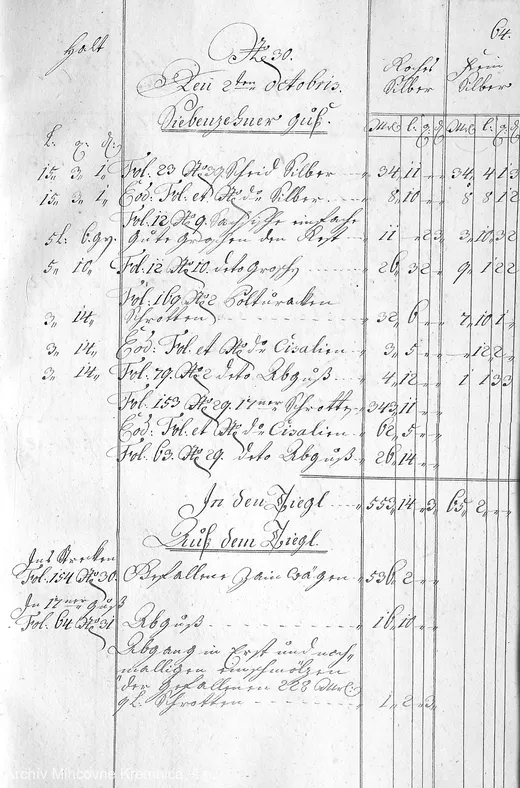 64.
Halt
No 30.
Den 2ten Octobris.
Siebenzehner Guß.
Roches Silber
Fein Silber
Mrk l: q: d: Mrk l: q: d:
l: q: d:
15 3 1 Fol. 23 No 39 Scheid Silber 34 11 34 4 1 3
15 3 1 Eod. Fol. et No do Silber 8 10 8 8 1 2
Fol. 12 No 9 einfache
5 l: 6 gr. Gute Groschen den Rest 11 2 3 3 10 3 2
5 10 Fol. 12 No 10 deto 26 3 2 9 1 2 2
Fol. 169 No 2
3 14 Schrotten 32 6 7 10 1
3 14 Eod. Fol. et No do Cisalien 3 5 12 2
3 14 Fol. 79. No 2 deto Abguß 4 12 1 1 3 3
Fol. 153 No 29. 17ner Schrotten 343 11
Eod. Fol. et No do Cisalien 62 5
Fol. 63. No 29. deto Abguß 26 14
In den Tiegl 553 14 3 65 2
Auß dem Tiegl
Ins Strecken
Fol. 154 No 30. Gefallene Zain wägen 536 2
In 17ner Guß
Fol. 64 No 31 Abguß 16 10
Abgang in Erst und noch-
malligen einschmölzen
der Gefallenen 228 Mrk:
Schrotten 1 2 3
Archív Mincovne Kremnica, š.p.